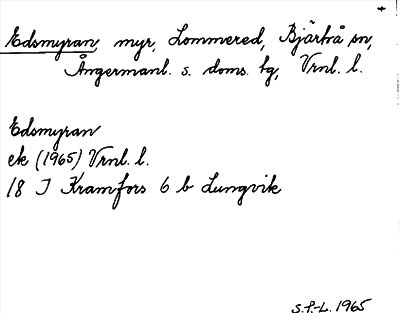 Edsmyran myr, Lommered, Bjärtrå sn,
Ångermanl. s. doms. tg, Vrnl. l.
Edsmyran
ek (1965) Vrnl. l.
18 I Kramfors 6 b Lungvik
S.P.-L. 1965